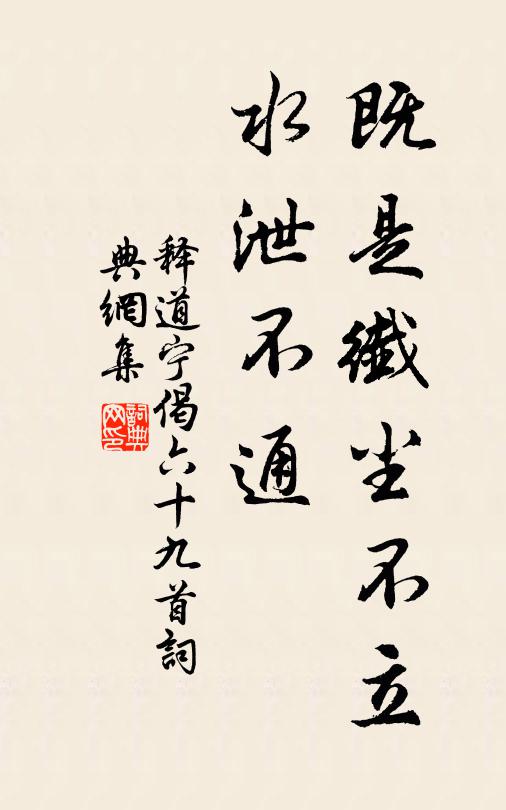 既是纖尘不立
水泄不通
释道宁偈六十九首詞
典網集
詞典
网印